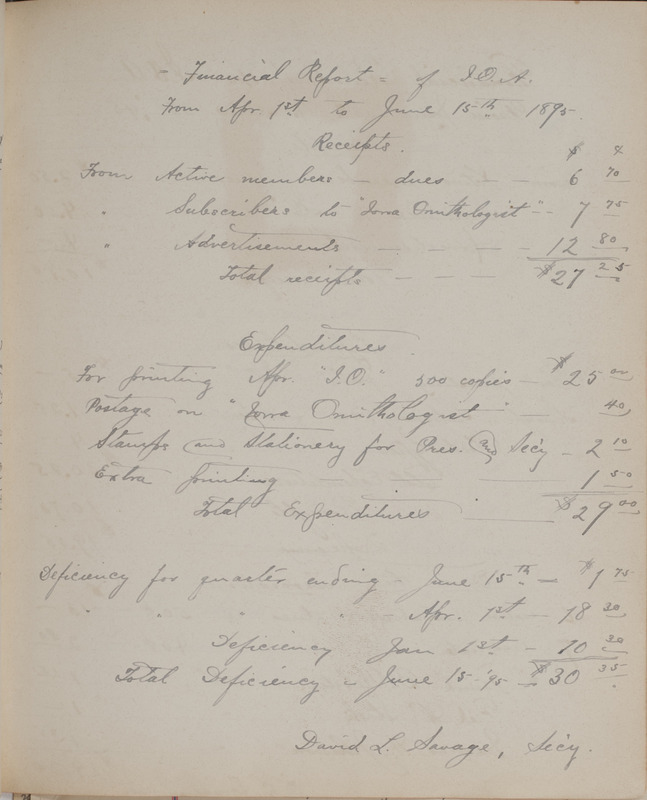 - Financial Report = of I.O.A.
From Apr 1st to June 15th 1895.
Receipts. $ ¢
From Active members - dues - - 6 70
" Subscribers to "Iowa Ornithologist" - 7 75
" Advertisements - - - - 12 80
Total receipts - - - - $27 25
Expenditures.
For printing Apr. "I.O." 500 copies - $25 00
Postage on "Iowa Ornithologist" - 40
Stamps and Stationery for Pres. and Sec'y - 2 10
Extra printing - - - 1 50
Total Expenditures - $29 00
Deficiency for quarter ending - June 15th - $1 75
" " " " - Apr. 1st - 18 30
Deficiency Jan 1st - 10 30
Total Deficiency - June 15 - '95 - $30 35
David L. Savage, Sec'y.